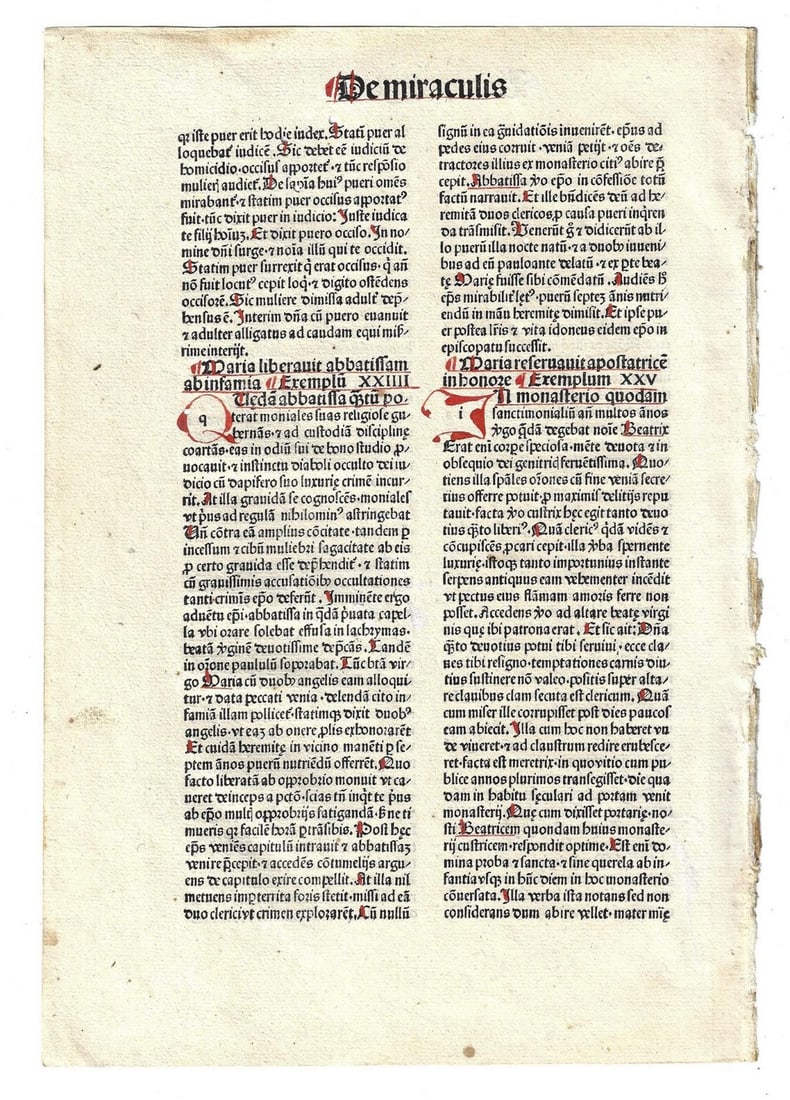 De miraculis
qꝛ iste puer erit hodie iudex. Statĩ puer al
loquebat᷑ iudicẽ. Sic debet eẽ iudiciũ de
homicidio. occisus apportet᷑. ⁊ tũc respõsio
mulieri audiet᷑. De sapĩa huiꝰ pueri omẽs
mirabant᷑. ⁊ statim puer occisus apportatꝰ
fuit. tũc dixit puer in iudicio: Juste iudica
te filij hoĩuꝫ. Et dixit puero occiso. In no/
mine dñi surge. ⁊ noĩa illũ qui te occidit.
Statim puer surrexit q̃ erat occisus. ⁊ q̃ añ
nõ fuit locutꝰ cepit loq̃. ⁊ digito ostẽdens
occisorẽ. Sic muliere dimissa adulť dep̃/
hensus ẽ. Interim dña cũ puero euanuit
⁊ adulter alligatus ad caudam equi mis̃/
rime interijt.
Maria liberauit abbatissam
ab infamia Exemplũ XXIIII
q Uedã abbatissa q̃tũ po-
terat moniales suas religiose gu/
bernãs. ⁊ ad custodiã discipline
coartãs. eas in odiũ sui de bono studio ꝓ/
uocauit. ⁊ instinctu diaboli occulto dei iu/
dicio cũ dapifero suo luxurie crimẽ incur/
rit. At illa grauidã se cognoscẽs. moniales
vt pꝰus ad regulã nihilominꝰ astringebat
Uñ cõtra eã amplius cõcitate. tandem ꝑ
incessum ⁊ cibũ muliebri sagacitate ab eis
ꝓ certo grauida esse dep̃hendit᷑. ⁊ statim
cũ grauissimis accusatiõibꝰ occultationes
tanti criminis ep̃o deferũt. Imminẽte ergo
aduẽtu ep̃i. abbatissa in q̃dã p̃uata capel/
la vbi orare solebat effusa in lachrymas.
beatã ꝟginẽ deuotissime dep̃cãs. Tandẽ
in orõne paululũ soporabat. Tũc btã vir/
go Maria cũ duobꝰ angelis eam alloqui/
tur. ⁊ data peccati venia. delendã cito in/
famiã illam pollicet᷑. statimqꝫ dixit duobꝰ
angelis. vt eaꝫ ab onere ꝓlis exhonorarẽt
Et cuidã heremite in vicino manẽti ꝑ se/
ptem ãnos puerũ nutriẽdũ offerrẽt. Quo
facto liberatã ab opprobrio monuit vt ca/
ueret deinceps a pctõ. scias tñ inq̃t te pꝰus
ab ep̃o multꝭ opprobrijs fatigandã. s̃ ne ti
mueris qꝛ facilẽ horã ꝑtrãsibis. Post hec
ep̃s veniẽs capitulũ intrauit ⁊ abbatissaꝫ
venire p̃cepit. ⁊ accedẽs cõtumelijs argu/
ens de capitulo exire compellit. At illa nil
metuens imꝑterrita foris stetit. missi ad eã
duo clerici vt crimen explorarẽt. Cũ nullũ
signũ in ea g̃uidatiõis inuenirẽt. ep̃us ad
pedes eius corruit. veniã petijt. ⁊ oẽs de/
tractores illius ex monasterio citiꝰ abire p̃
cepit. Abbatissa ꝟo ep̃o in cõfessiõe totũ
factũ narrauit. Et ille bñdicẽs deũ ad he/
remitã duos clericos, ꝓ causa pueri inq̃ren
da trãsmisit. Uenerũt ḡ ⁊ didicerũt ab il/
lo puerũ illa nocte natũ. ⁊ a duobꝰ iuueni/
bus ad eũ pauloante delatũ. ⁊ ex ꝑte bea/
te Marie fuisse sibi cõmẽdatũ. Audiẽs h̃
ep̃s mirabilit᷑ let᷑ꝰ. puerũ septeꝫ ãnis nutri/
endũ in mãu heremite dimisit. Et ipse pu/
er postea lr̃is ⁊ vita idoneus eidem ep̃o in
episcopatu successit.
Maria reseruauit apostatricẽ
in honore Exemplum XXV
i N monasterio quodam
sanctimonialiũ añ multos ãnos
ꝟgo q̃dã degebat noĩe Beatrix
Erat enĩ corꝑe speciosa. mẽte deuota ⁊ in
obsequio dei genitricꝭ feruẽtissima. Quo/
tiens illa sp̃ales orõnes cũ fine veniã secre/
tius offerre potuit. ꝓ maximis delitijs repu
tauit. facta ꝟo custrix hec egit tanto deuo
tius q̃to liberiꝰ. Quã clericꝰ q̃dã vidẽs ⁊
cõcupiscẽs, ꝓcari cepit. illa ꝟba spernente
luxurie. istoqꝫ tanto importunius instante
serpens antiquus eam vehementer incẽdit
vt pectus eius flãmam amoris ferre non
posset. Accedens ꝟo ad altare beate virgi
nis que ibi patrona erat. Et sic ait: Dña
q̃to deuotius potui tibi seruiui. ecce cla/
ues tibi resigno. temptationes carnis diu/
tius sustinere nõ valeo. positis super alta/
re clauibus clam secuta est clericum. Quã
cum miser ille corrupisset post dies paucos
eam abiecit. Illa cum hoc non haberet vn
de viueret. ⁊ ad claustrum redire erubesce/
ret. facta est meretrix. in quo vitio cum pu/
blice annos plurimos transegisset. die qua
dam in habitu seculari ad portam venit
monasterij. Que cum dixisset portarie. no/
sti Beatricem quondam huius monaste/
rij custricem. respondit optime. Est enĩ do/
mina proba ⁊ sancta. ⁊ sine querela ab in/
fantia vsqꝫ in hũc diem in hoc monasterio
cõuersata. Illa verba ista notans sed non
considerans dum abire vellet. mater mĩe